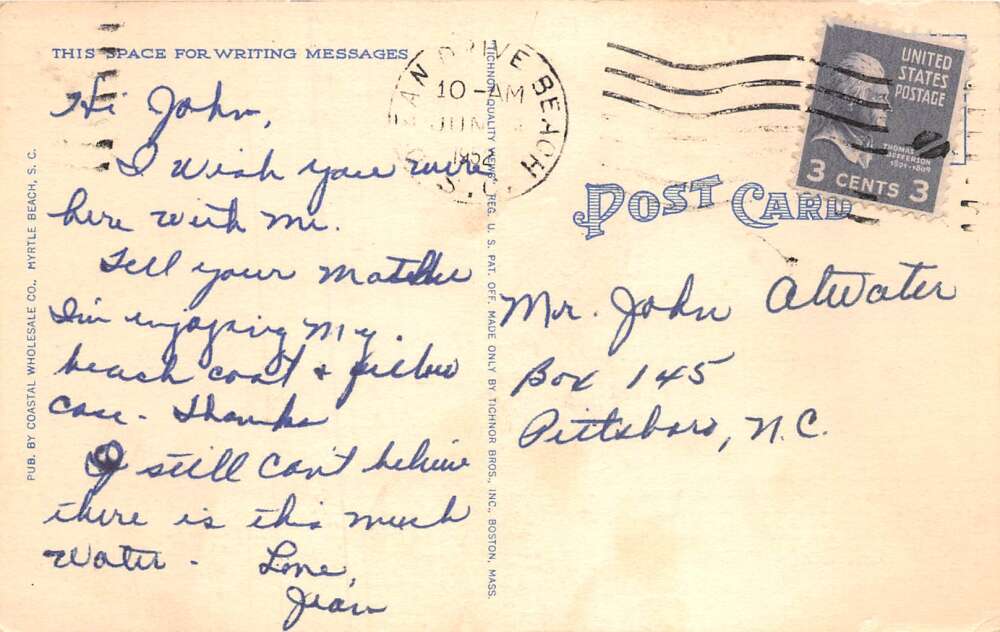 THIS SPACE FOR WRITING MESSAGES
Hi John,
I wish you were
here with me.
Tell your mother
I'm enjoying my
beach coat & pillow
case - Thanks
I still can't believe
there is this much
Water -
Love,
Jean
PUB. BY COASTAL WHOLESALE CO., MYRTLE BEACH, S. C.
"TICHNOR QUALITY VIEWS" REG. U. S. PAT. OFF. MADE ONLY BY TICHNOR BROS., INC., BOSTON, MASS.
DRIVE BEACH
10-AM
JUN
1952
S.C.
UNITED
STATES
POSTAGE
THOMAS
JEFFERSON
1801-1809
3 CENTS 3
POST CARD
Mr. John Atwater
Box 145
Pittsboro, N.C.